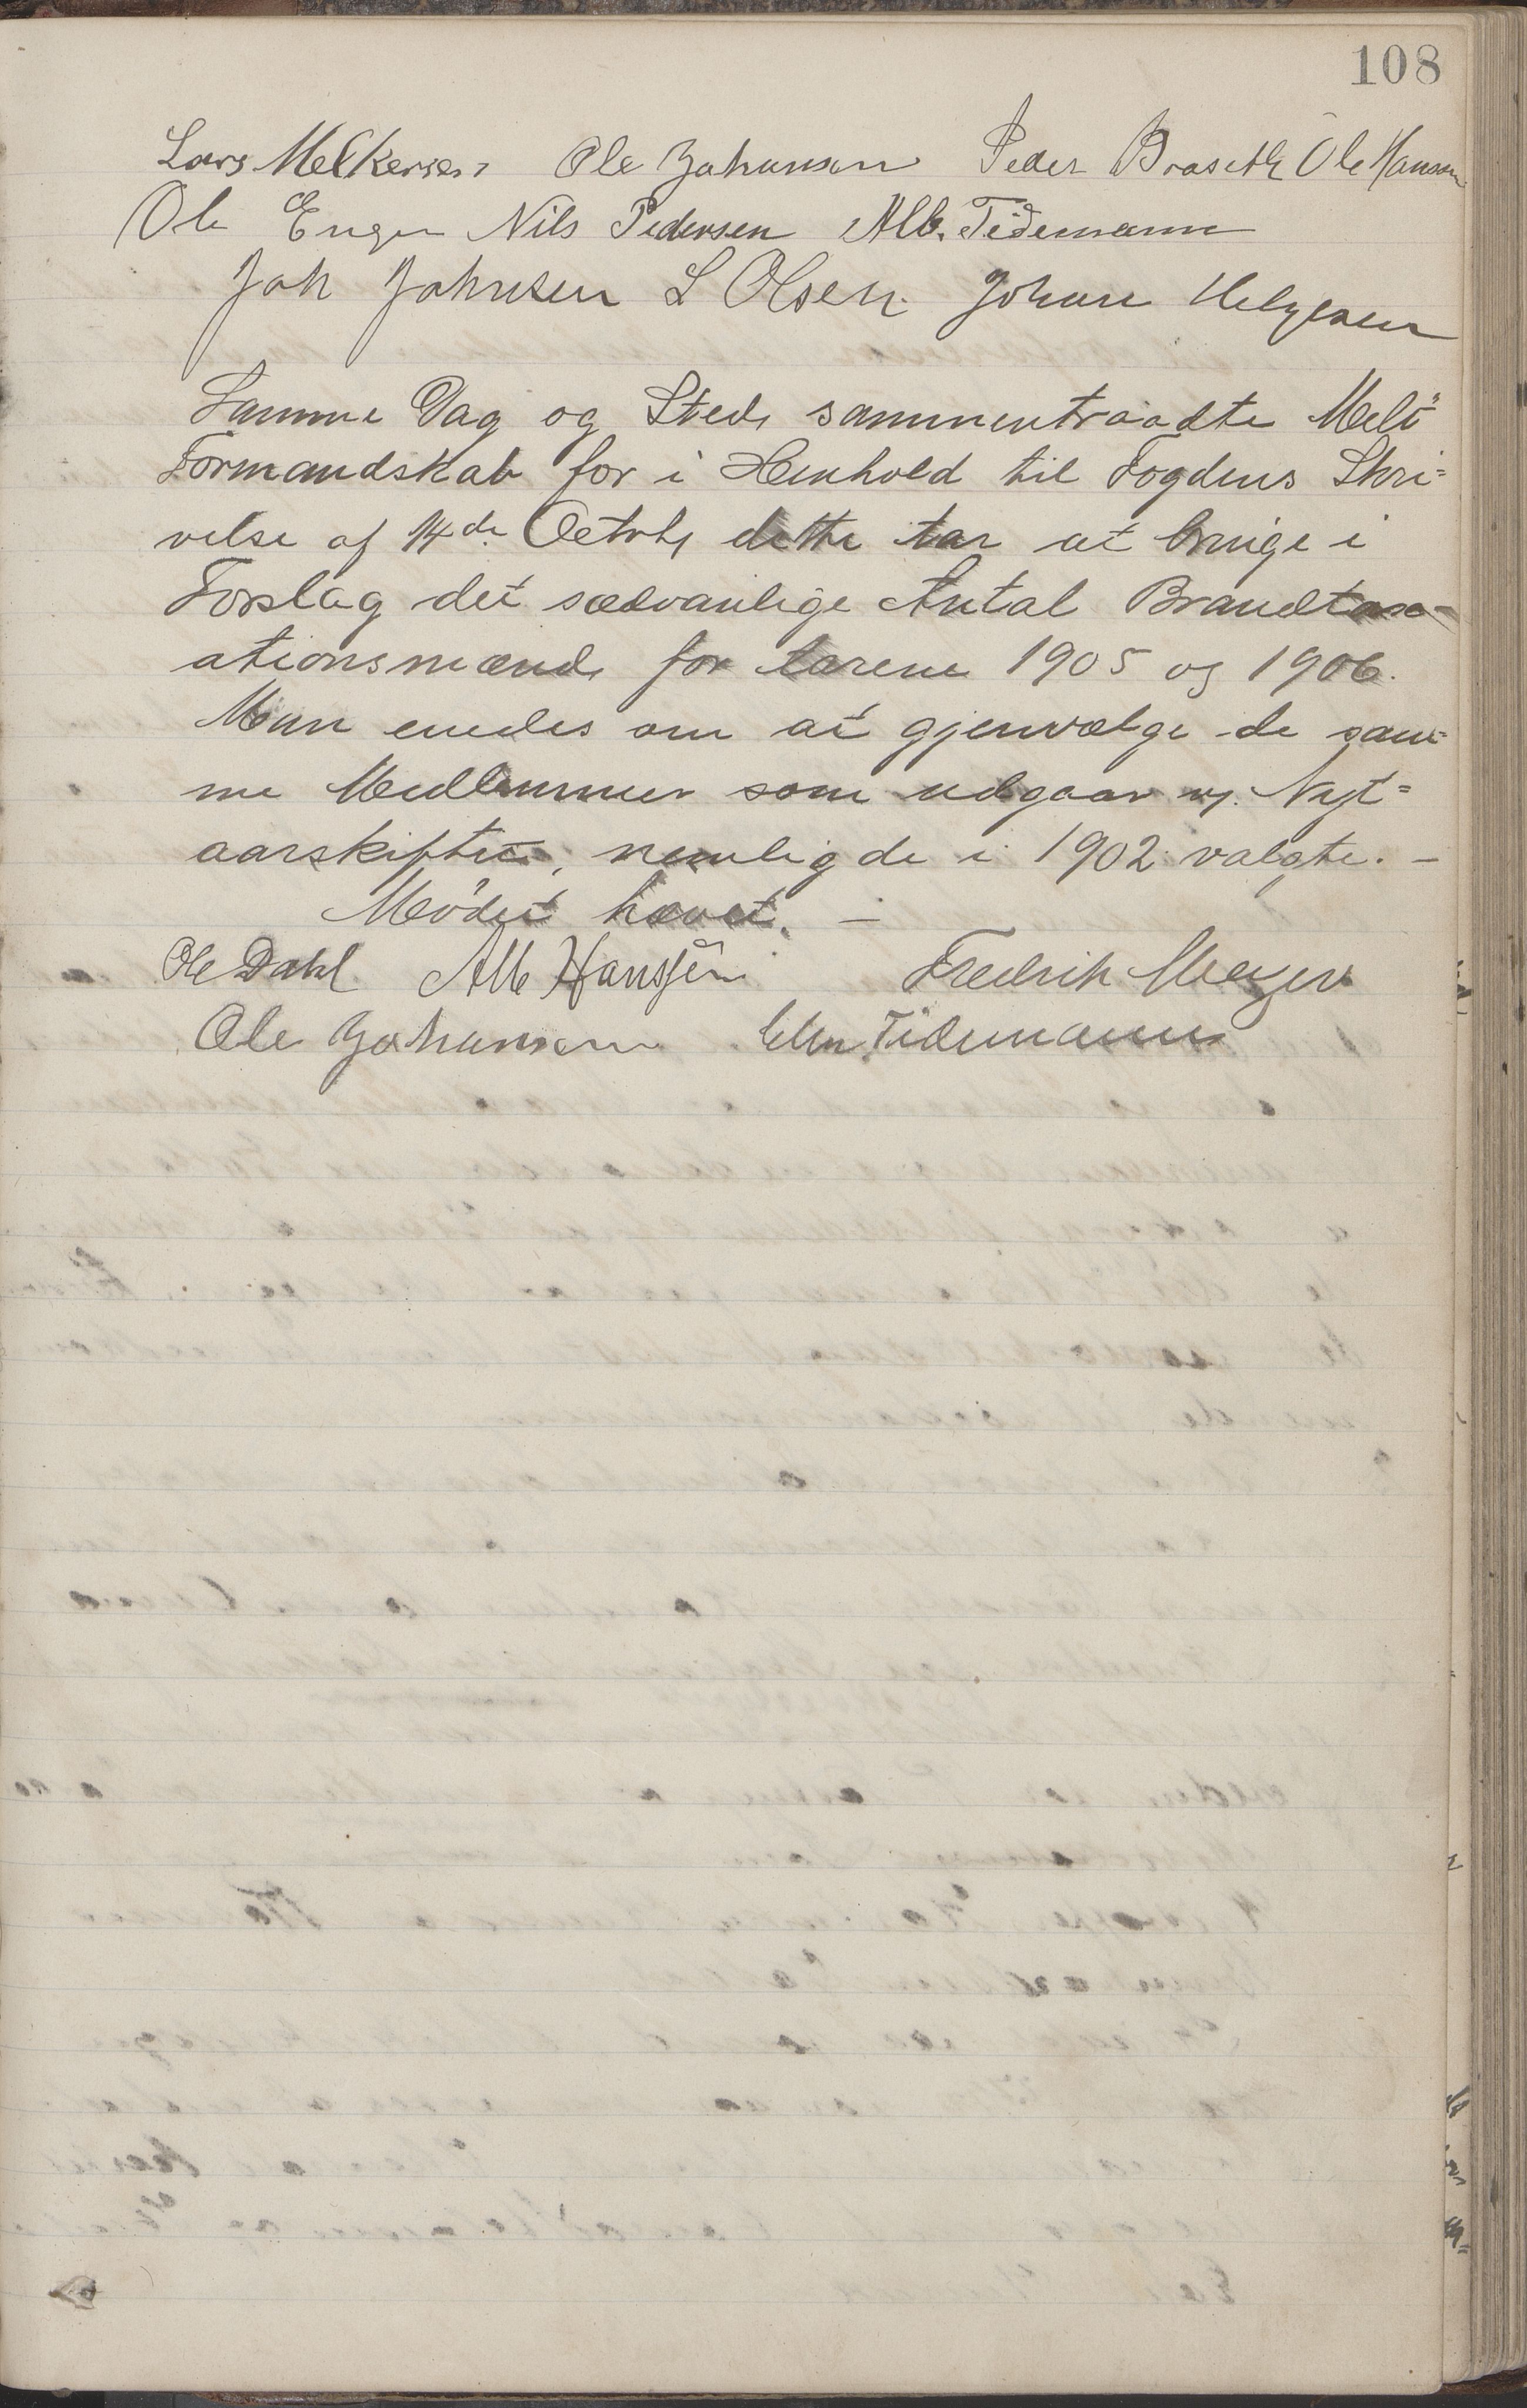 108
Lars Melkersen Ole Johansen Peder Braseth Ole Hansen
Ole Enge Nils Pedersen Alb. Tidemann
Joh Johnsen L Olsen. Johan Helgesen
Samme Dag og Sted sammentraadte Melö
Formandskab for i Henhold til Fogdens Skri=
velse af 14de Octobr dette Aar at bringe i
Forslag det sædvanlige Antal Brandtax-
ationsmænd for Aarene 1905 og 1906.
Man enedes om at gjenvælge de sam=
me Medlemmer som udgaar v. Nyt=
aarskiftet, nemlig de i 1902 valgte. —
Mödet hævet. —
Ole Dahl Alb Hanssen Fredrik Meyer
Ole Johansen Tidemann